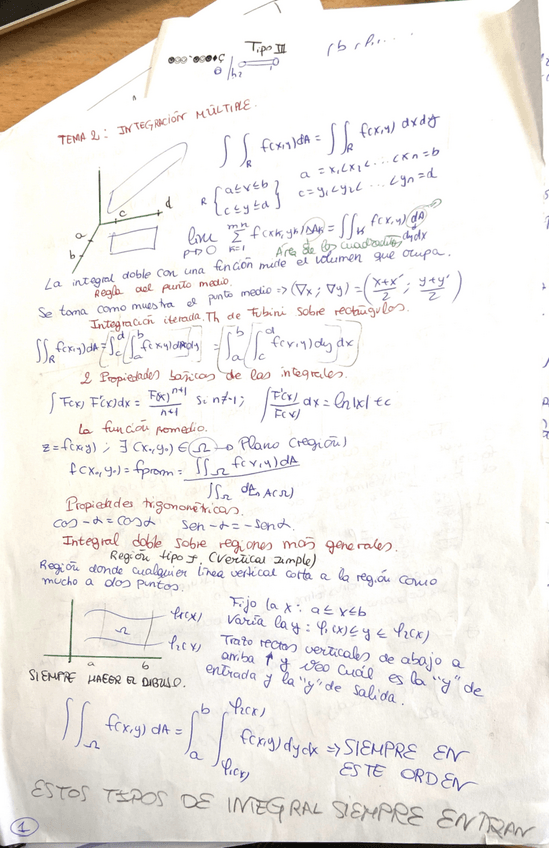 Tipo III
TEMA 2: INTEGRACIÓN MÚLTIPLE.
∫∫_R f(x,y)dA = ∫∫_R f(x,y) dxdy
R {a≤x≤b
c≤y≤d}
a = x₁<x₂<...<xn = b
c = y₁<y₂<...<yn = d
a
b
c
d
lim p→0 Σ_{k=1}^{mn} f(xk,yk)ΔAk = ∫∫_R f(x,y) dA
dydx
Área de los cuadrados
La integral doble con una función mide el volumen que ocupa.
Regla del punto medio.
Se toma como muestra el punto medio => (∇x ; ∇y) = (x+x'/2 ; y+y'/2)
Integración iterada. Th de Fubini sobre rectángulos.
∫∫_R f(x,y)dA = ∫_c^d (∫_a^b f(x,y)dx)dy = ∫_a^b (∫_c^d f(x,y)dy)dx
2 Propiedades básicas de las integrales.
∫ F(x) F'(x)dx = F(x)^{n+1}/n+1 si n≠-1; ∫ F'(x)/F(x) dx = ln|x|+c
La función promedio.
z=f(x,y) ; ∃ (x₀,y₀) ∈ Ω → Plano (región)
f(x₀,y₀) = fprom = ∫∫_Ω f(x,y)dA / ∫∫_Ω dA A(Ω)
Propiedades trigonométricas.
cos -α = cos α sen -α = -sen α.
Integral doble sobre regiones más generales.
Región tipo I. (Vertical simple)
Región donde cualquier línea vertical corta a la región como
mucho a dos puntos.
φ₁(x)
Ω
φ₂(x)
a b
Fijo la x: a≤x≤b
Varía la y: φ₁(x)≤y≤φ₂(x)
Trazo rectas verticales de abajo a
arriba ↑ y veo cuál es la "y" de
entrada y la "y" de salida.
SIEMPRE HACER EL DIBUJO.
∫∫_Ω f(x,y) dA = ∫_a^b ∫_{φ₁(x)}^{φ₂(x)} f(x,y)dydx => SIEMPRE EN
ESTE ORDEN
ESTOS TIPOS DE INTEGRAL SIEMPRE ENTRAN
1